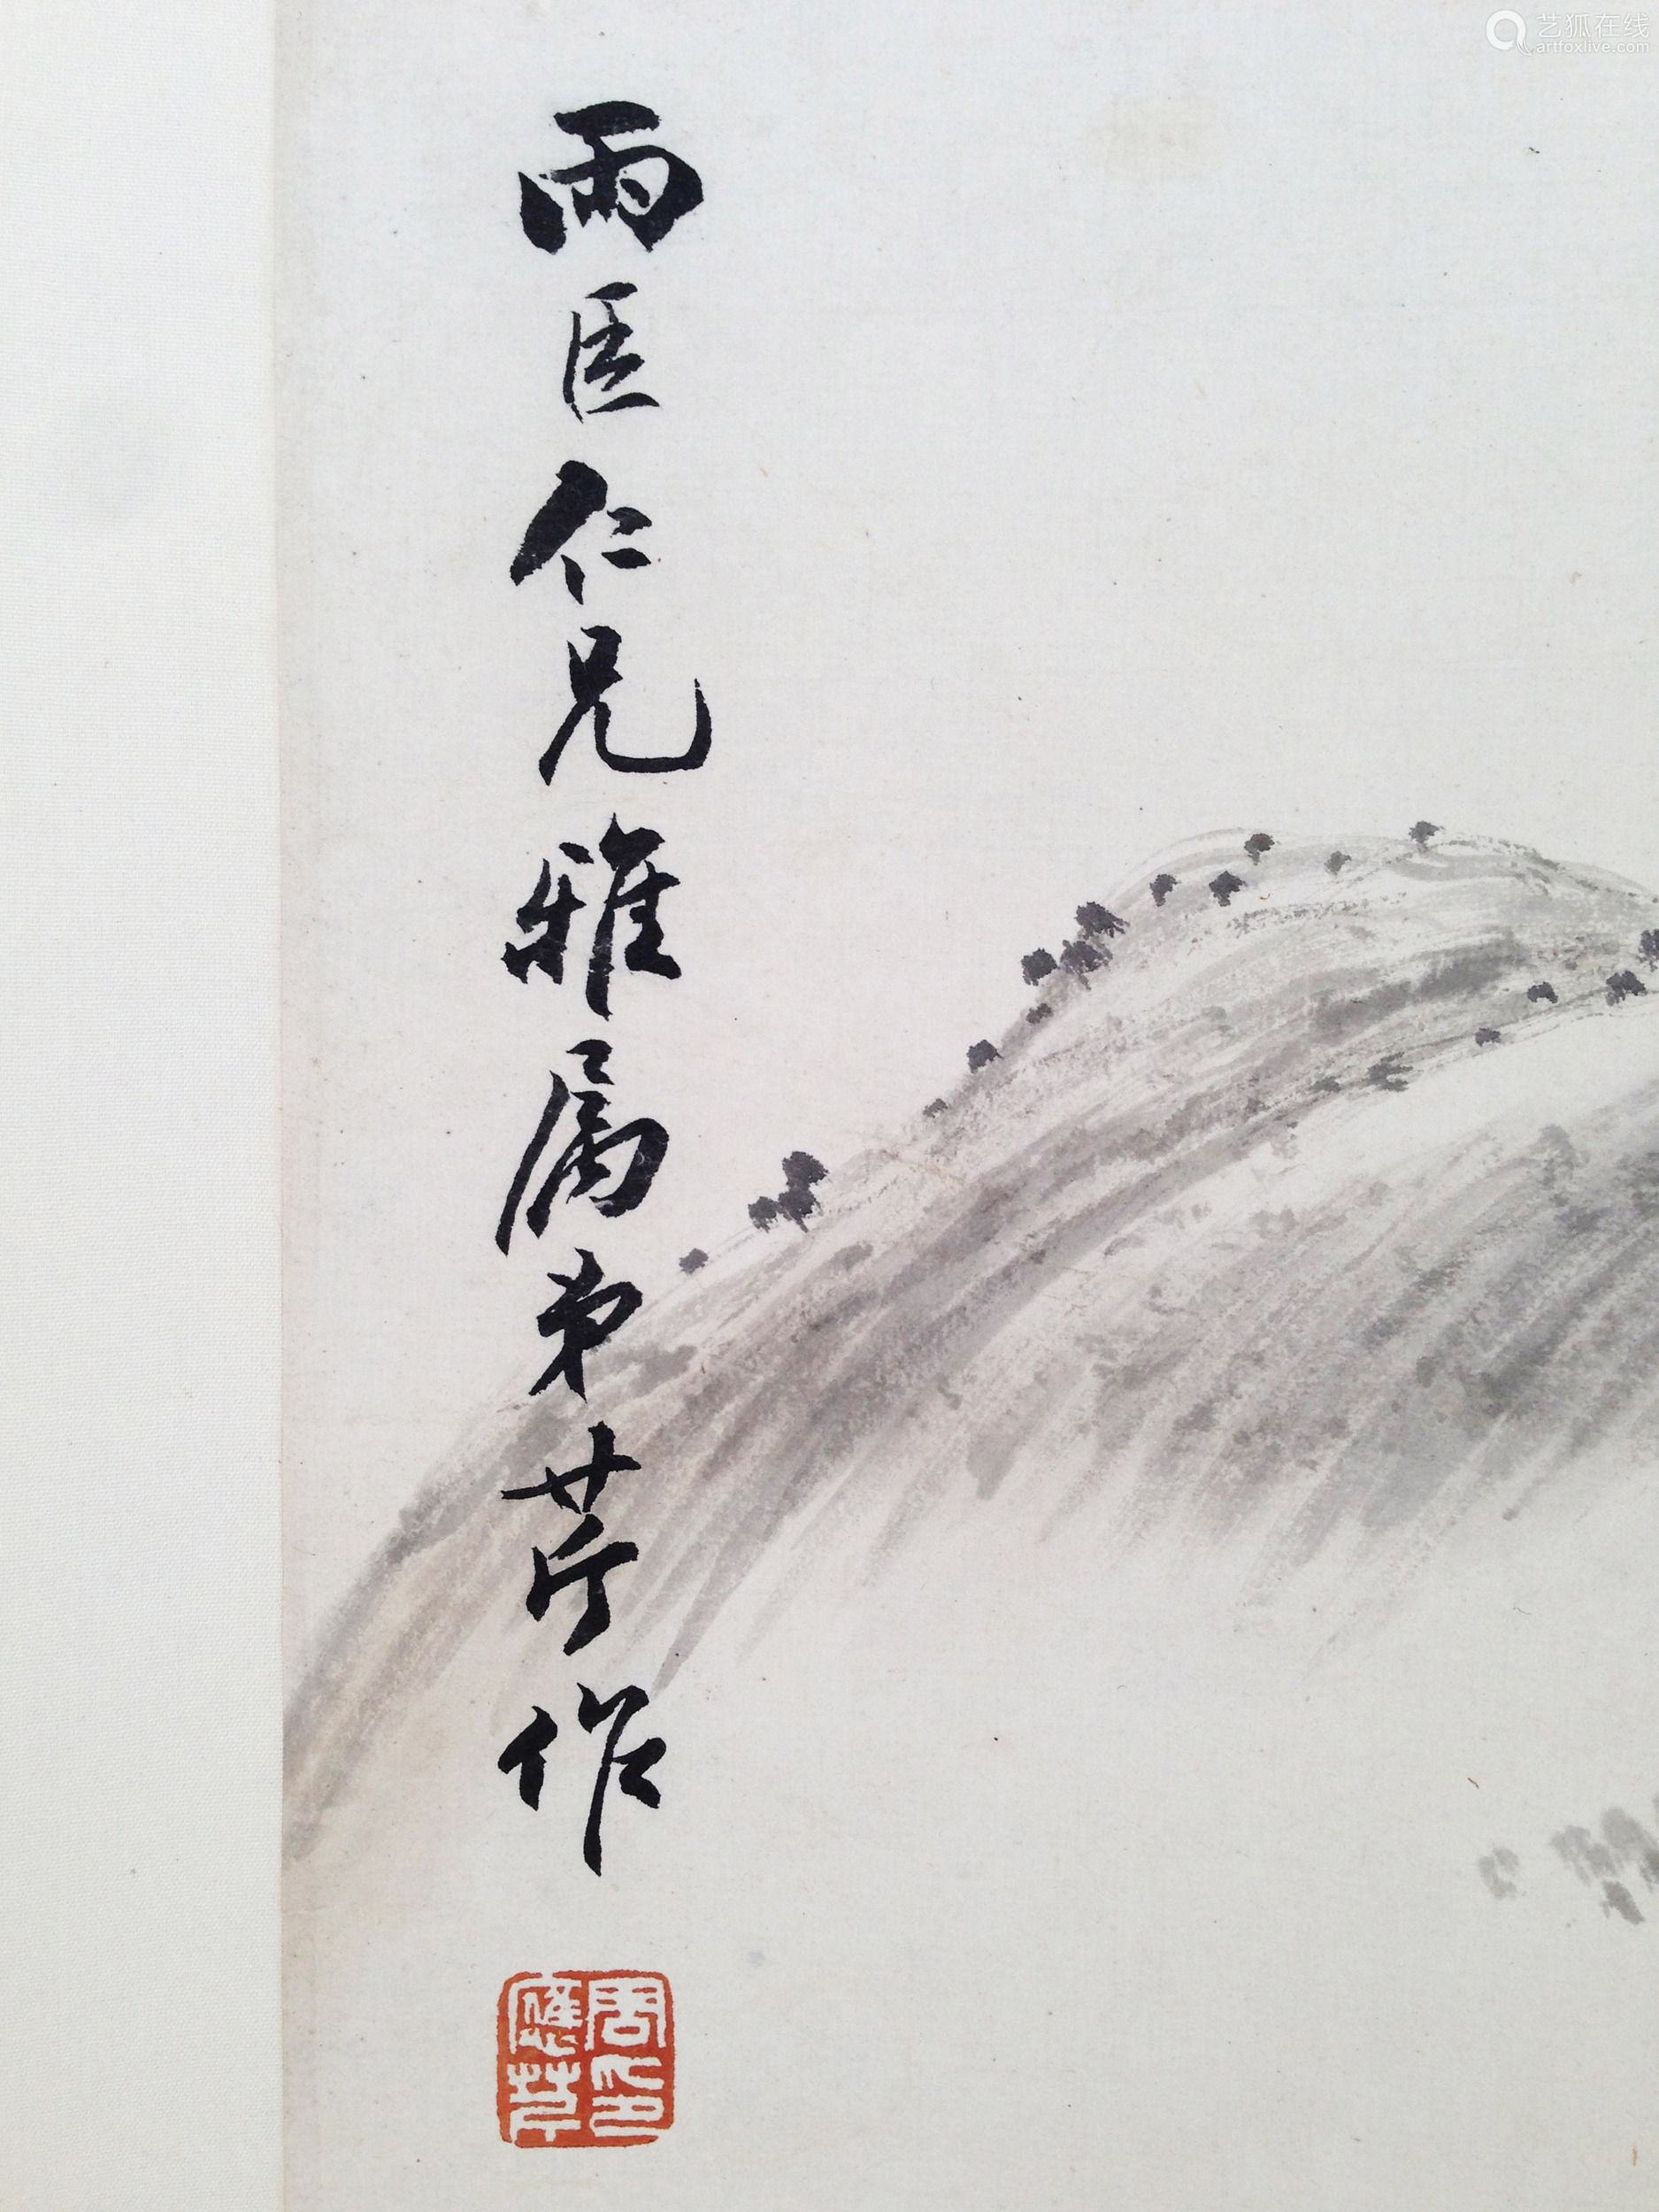 雨臣仁兄雅属弟芹作
周印
應芹
艺狐在线
artfoxlive.com